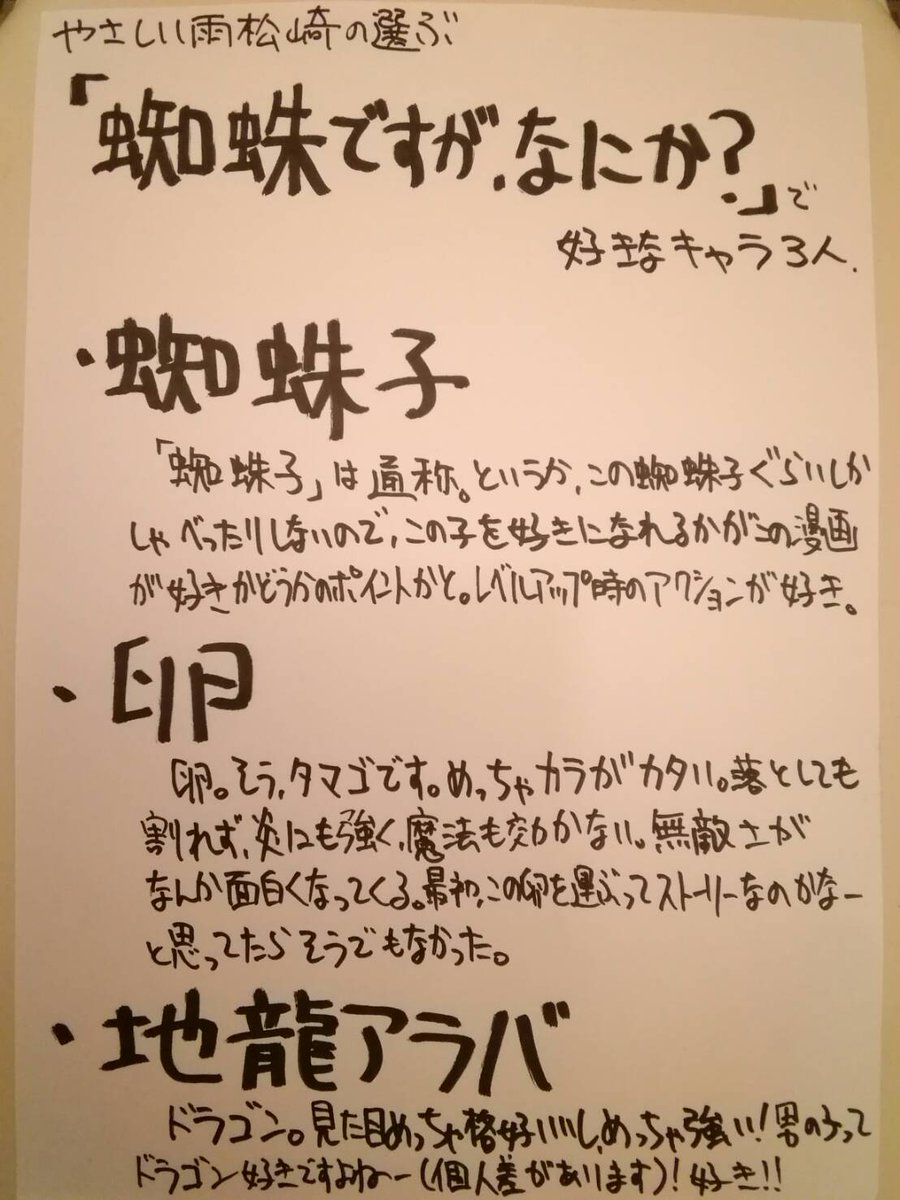 やさしい雨松崎の選ぶ
「蜘蛛ですが、なにか?」で
好きなキャラ3人.
・蜘蛛子
「蜘蛛子」は通称。というか、この蜘蛛子ぐらいしか
しゃべったりしないので、この子を好きになれるかがこの漫画
が好きかどうかのポイントかと。レベルアップ時のアクションが好き。
・卵
卵。そう、タマゴです。めっちゃカラがカタい。落としても
割れず、炎にも強く、魔法も効かない。無敵さが
なんか面白くなってくる。最初、この卵を運ぶってストーリーなのかなー
と思ってたらそうでもなかった。
・地龍アラバ
ドラゴン。見た目めっちゃ格好いいし、めっちゃ強い!男の子って
ドラゴン好きですよねー(個人差があります)!好き!!